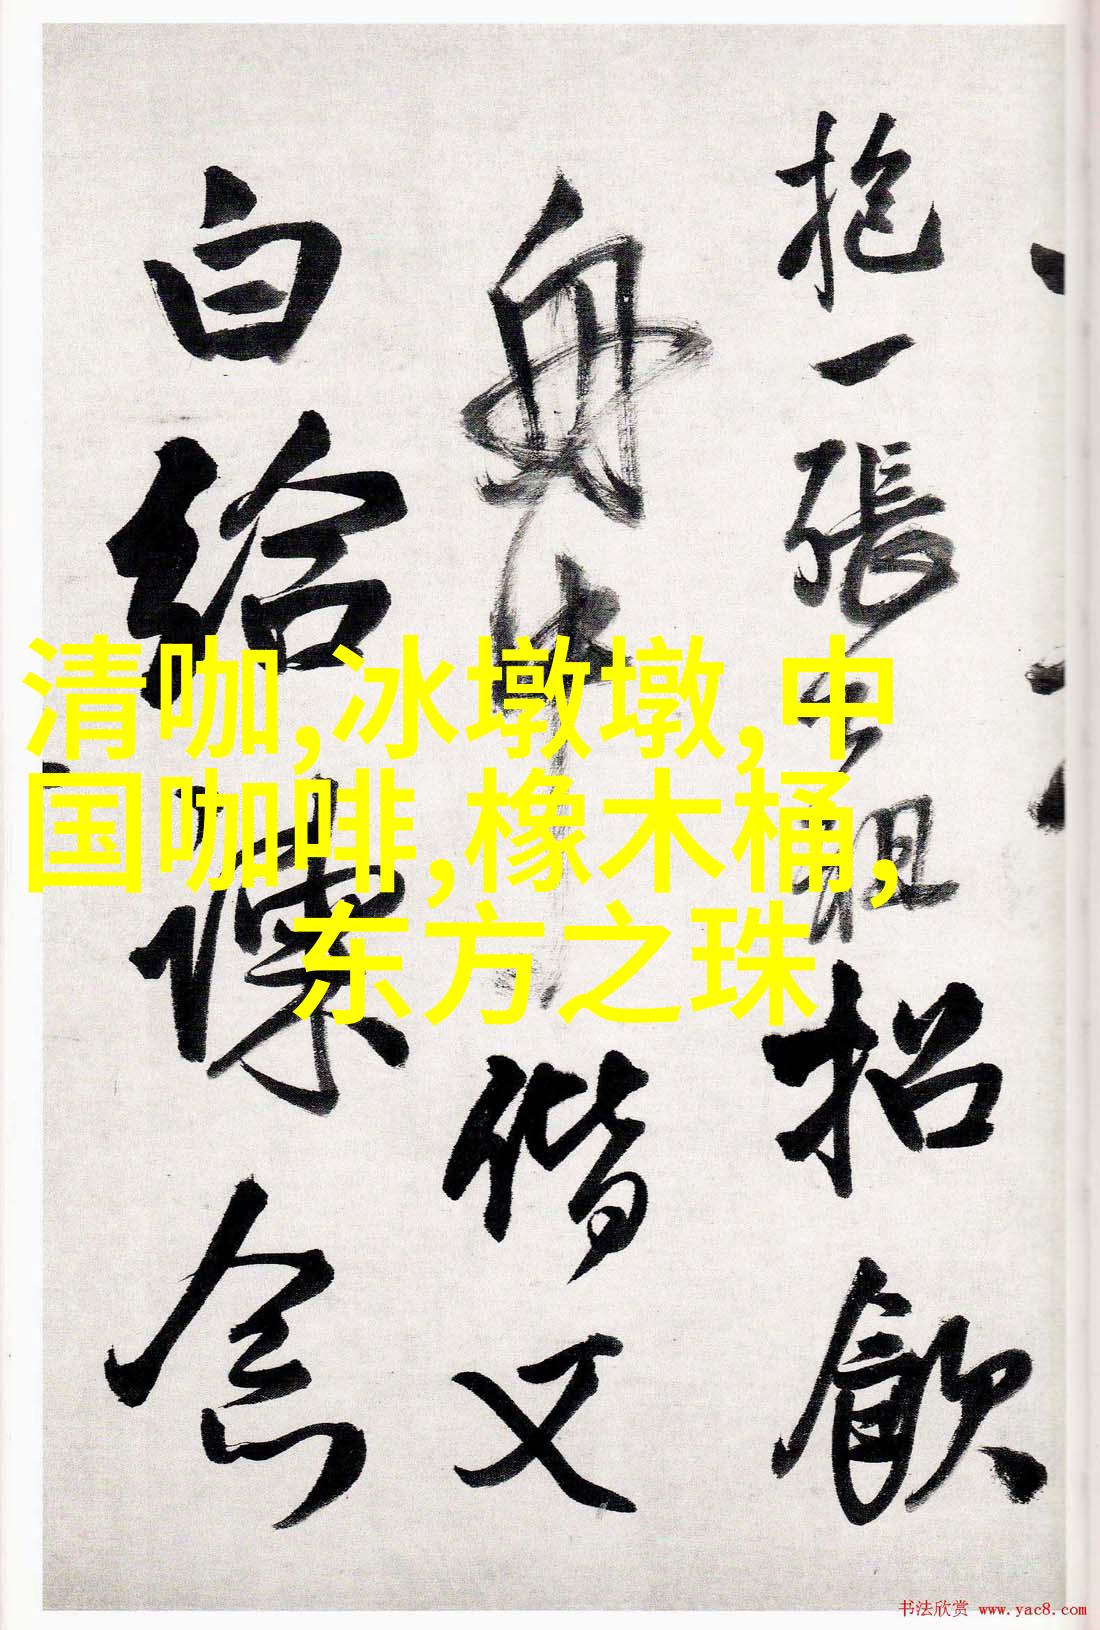 抱一張
招飲
舟中
偕又
白給
念
清咖,冰墩墩,中
国咖啡,橡木桶,
东方之珠
书法欣赏 www.yac8.com